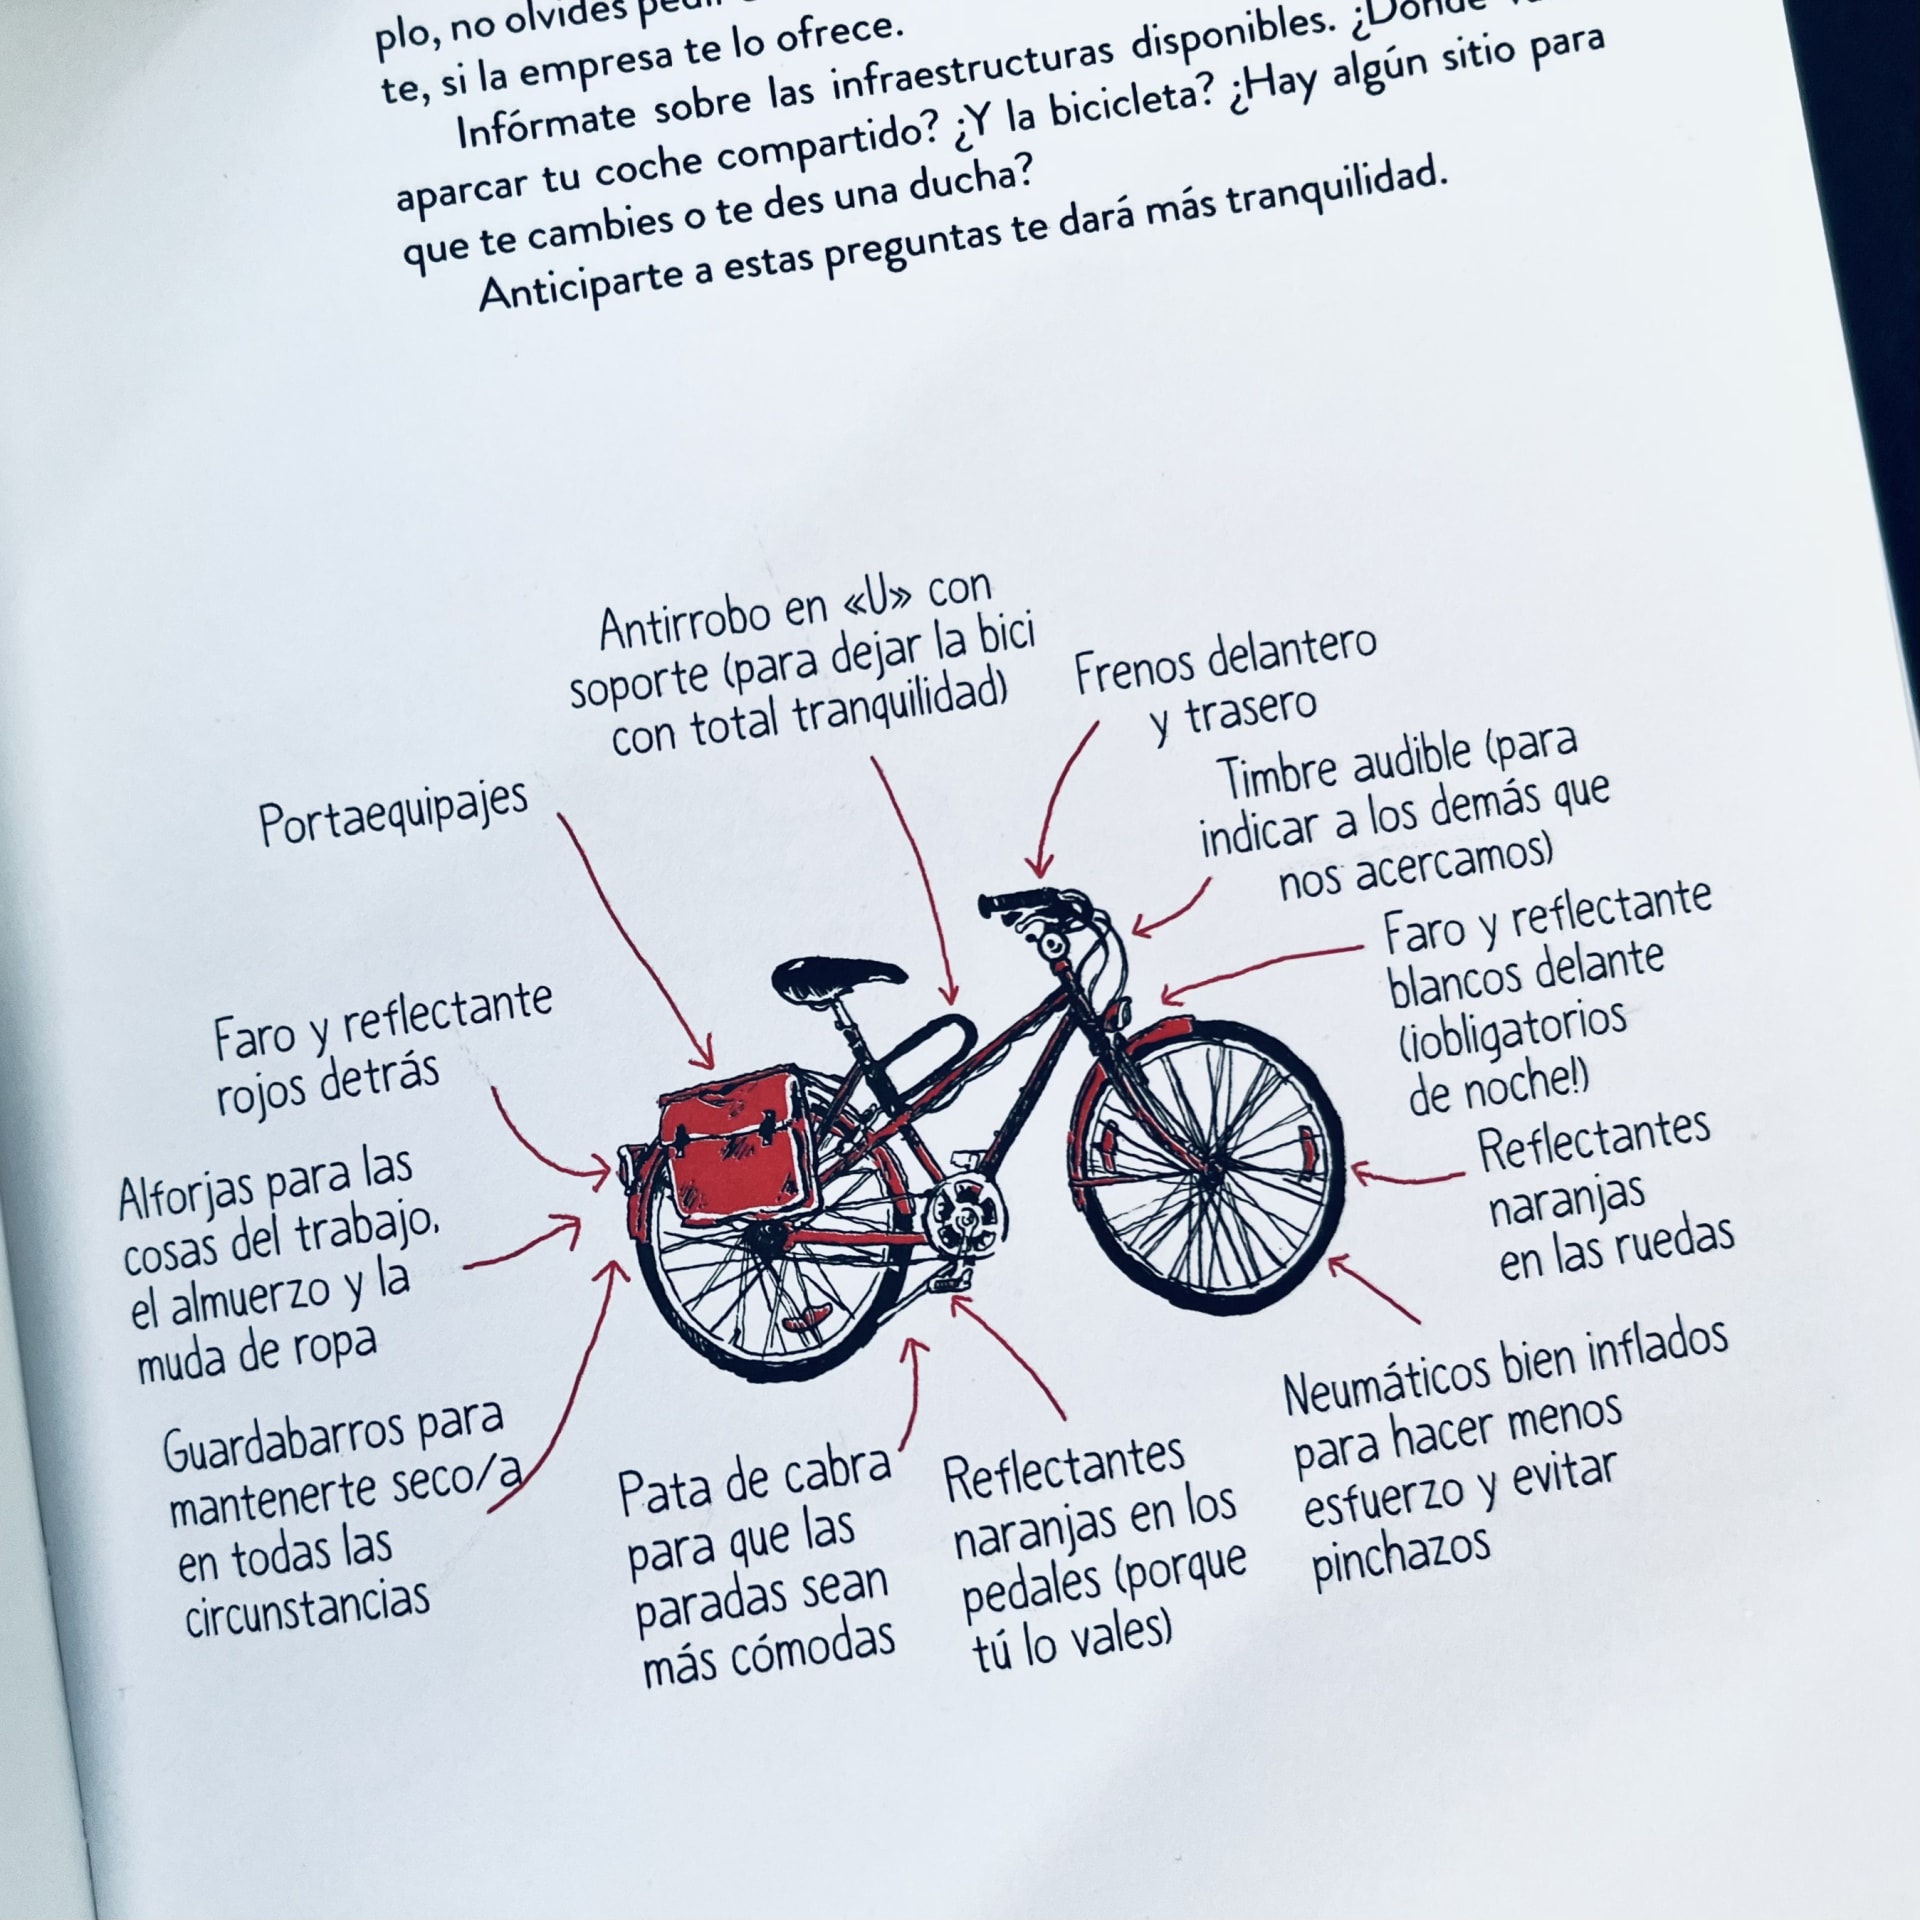 plo, no olvides
te, si la empresa te lo ofrece.
Infórmate sobre las infraestructuras disponibles. ¿Dónde
aparcar tu coche compartido? ¿Y la bicicleta? ¿Hay algún sitio para
que te cambies o te des una ducha?
Anticiparte a estas preguntas te dará más tranquilidad.
Antirrobo en «U» con
soporte (para dejar la bici
con total tranquilidad)
Frenos delantero
y trasero
Timbre audible (para
indicar a los demás que
nos acercamos)
Portaequipajes
Faro y reflectante
blancos delante
(¡obligatorios
de noche!)
Faro y reflectante
rojos detrás
Reflectantes
naranjas
en las ruedas
Alforjas para las
cosas del trabajo,
el almuerzo y la
muda de ropa
Neumáticos bien inflados
para hacer menos
esfuerzo y evitar
pinchazos
Guardabarros para
mantenerte seco/a
en todas las
circunstancias
Pata de cabra
para que las
paradas sean
más cómodas
Reflectantes
naranjas en los
pedales (porque
tú lo vales)